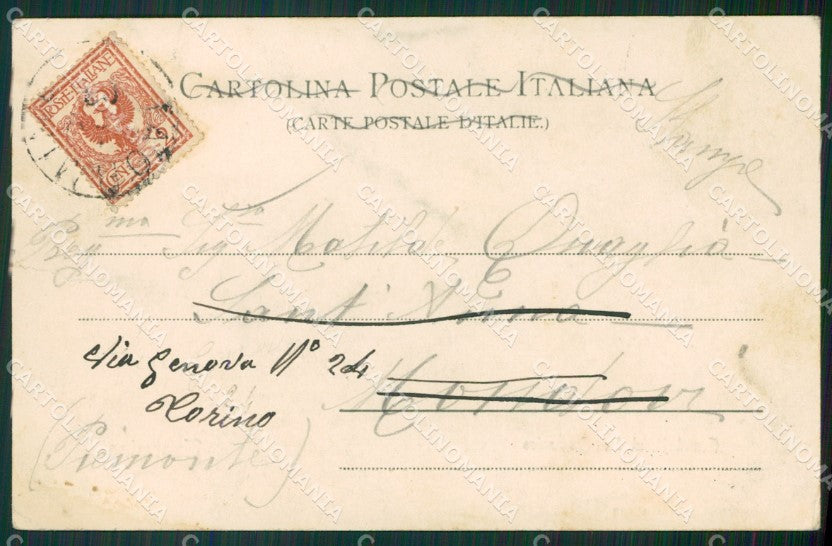 CARTOLINA POSTALE ITALIANA
(CARTE POSTALE D'ITALIE.)
Stampe
POSTE ITALIANE
CENT. 2
MILANO
Gen.ma Sig.sta Matilde Quaglia
Sant'Anna
Mondovì
Via Genova N° 24
Torino
(Piemonte)
CARTOLINOMANIA